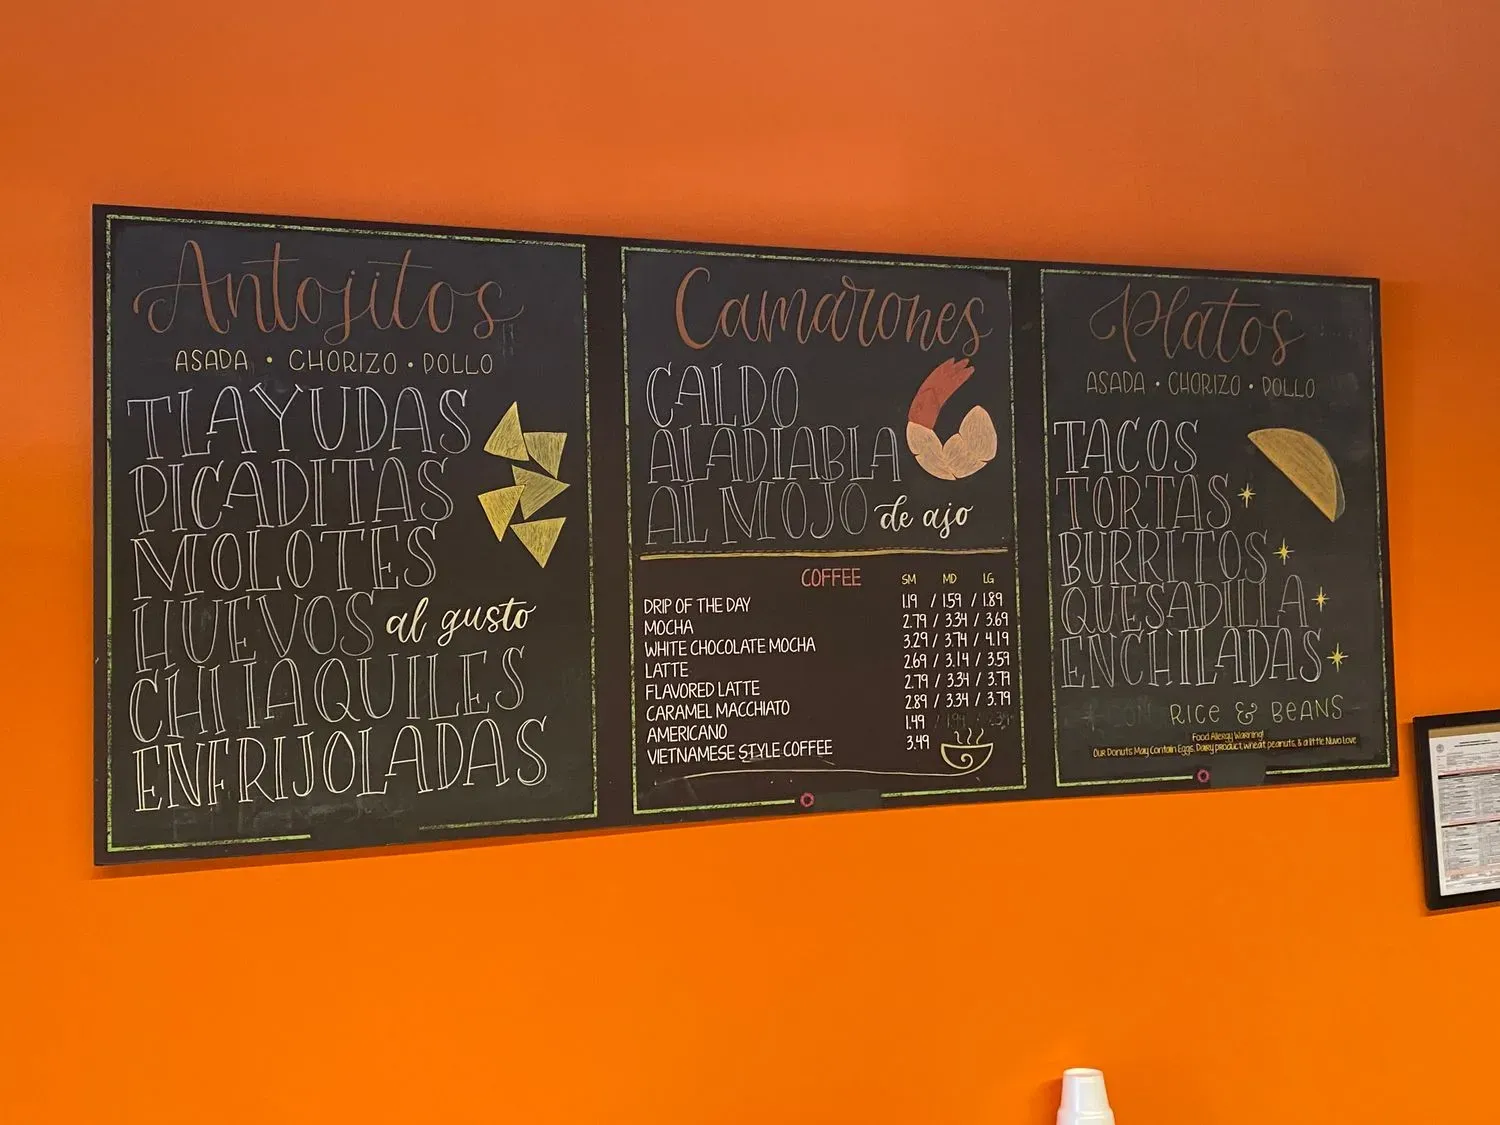 Antojitos
ASADA • CHORIZO • POLLO
TLAYUDAS
PICADITAS
MOLOTES
HUEVOS al gusto
CHILAQUILES
ENFRIJOLADAS
Camarones
CALDO
A LA DIABLA
AL MOJO de ajo
COFFEE SM MD LG
DRIP OF THE DAY 1.19 / 1.59 / 1.89
MOCHA 2.79 / 3.34 / 3.69
WHITE CHOCOLATE MOCHA 3.29 / 3.74 / 4.19
LATTE 2.69 / 3.14 / 3.59
FLAVORED LATTE 2.79 / 3.34 / 3.79
CARAMEL MACCHIATO 2.89 / 3.34 / 3.79
AMERICANO 1.49 / 1.94 /
VIETNAMESE STYLE COFFEE 3.49
Platos
ASADA • CHORIZO • POLLO
TACOS
TORTAS
BURRITOS
QUESADILLA
ENCHILADAS
CON RICE & BEANS
Food Allergy Warning!
Our Donuts May Contain Eggs, Dairy product, wheat, peanuts, & a little Nuvo Love